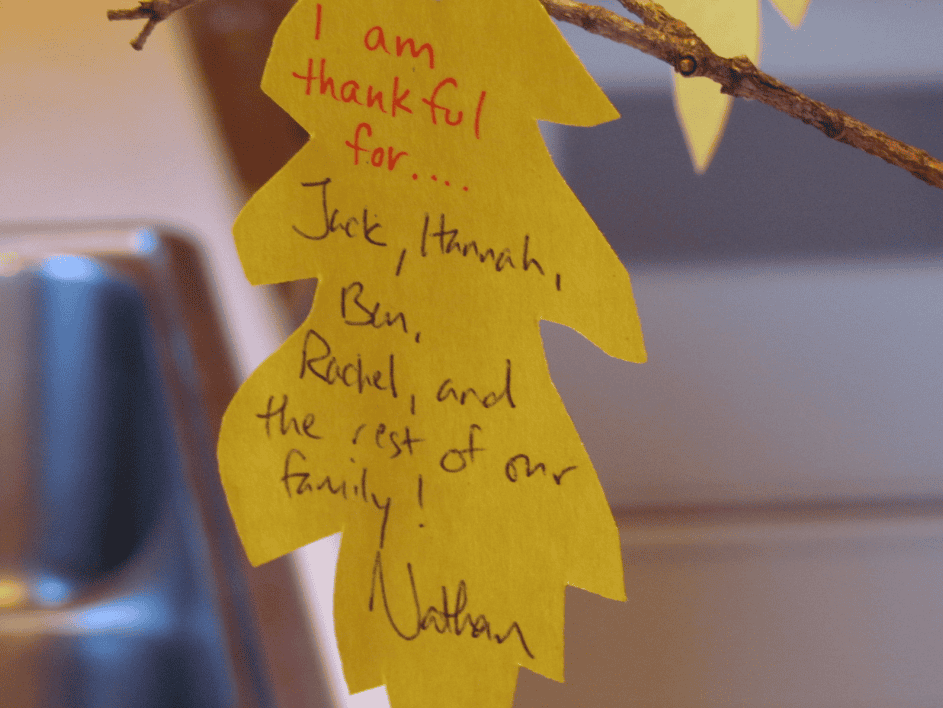 I am
thankful
for....
Jack, Hannah,
Ben,
Rachel, and
the rest of our
family!
Nathan